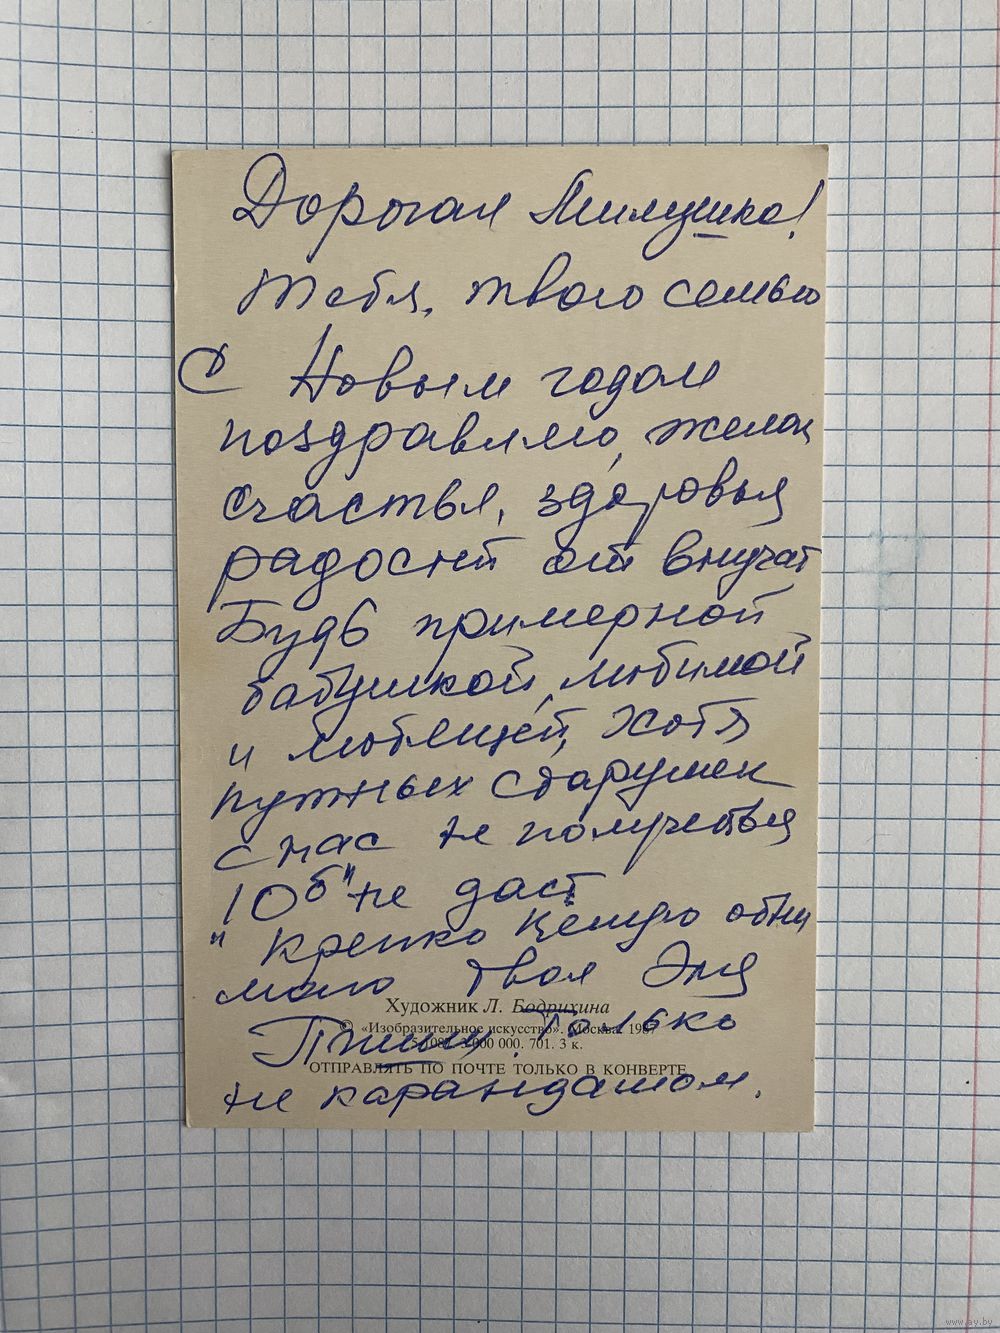 Дорогая Милушка!
Тебя, твою семью
С Новым годом
поздравляю, желаю
счастья, здоровья
радости от внучат
Будь примерной
бабушкой, любимой
и любящей, хотя
путных старушек
с нас не получится
"10б" не даст
Крепко целую обни
маю твоя Эля
Художник Л. Бодрихина
© «Изобразительное искусство». Москва. 1987
3 000 000. 701. 3 к.
Пиши. Только
ОТПРАВЛЯТЬ ПО ПОЧТЕ ТОЛЬКО В КОНВЕРТЕ
не карандашом.
www.ay.by